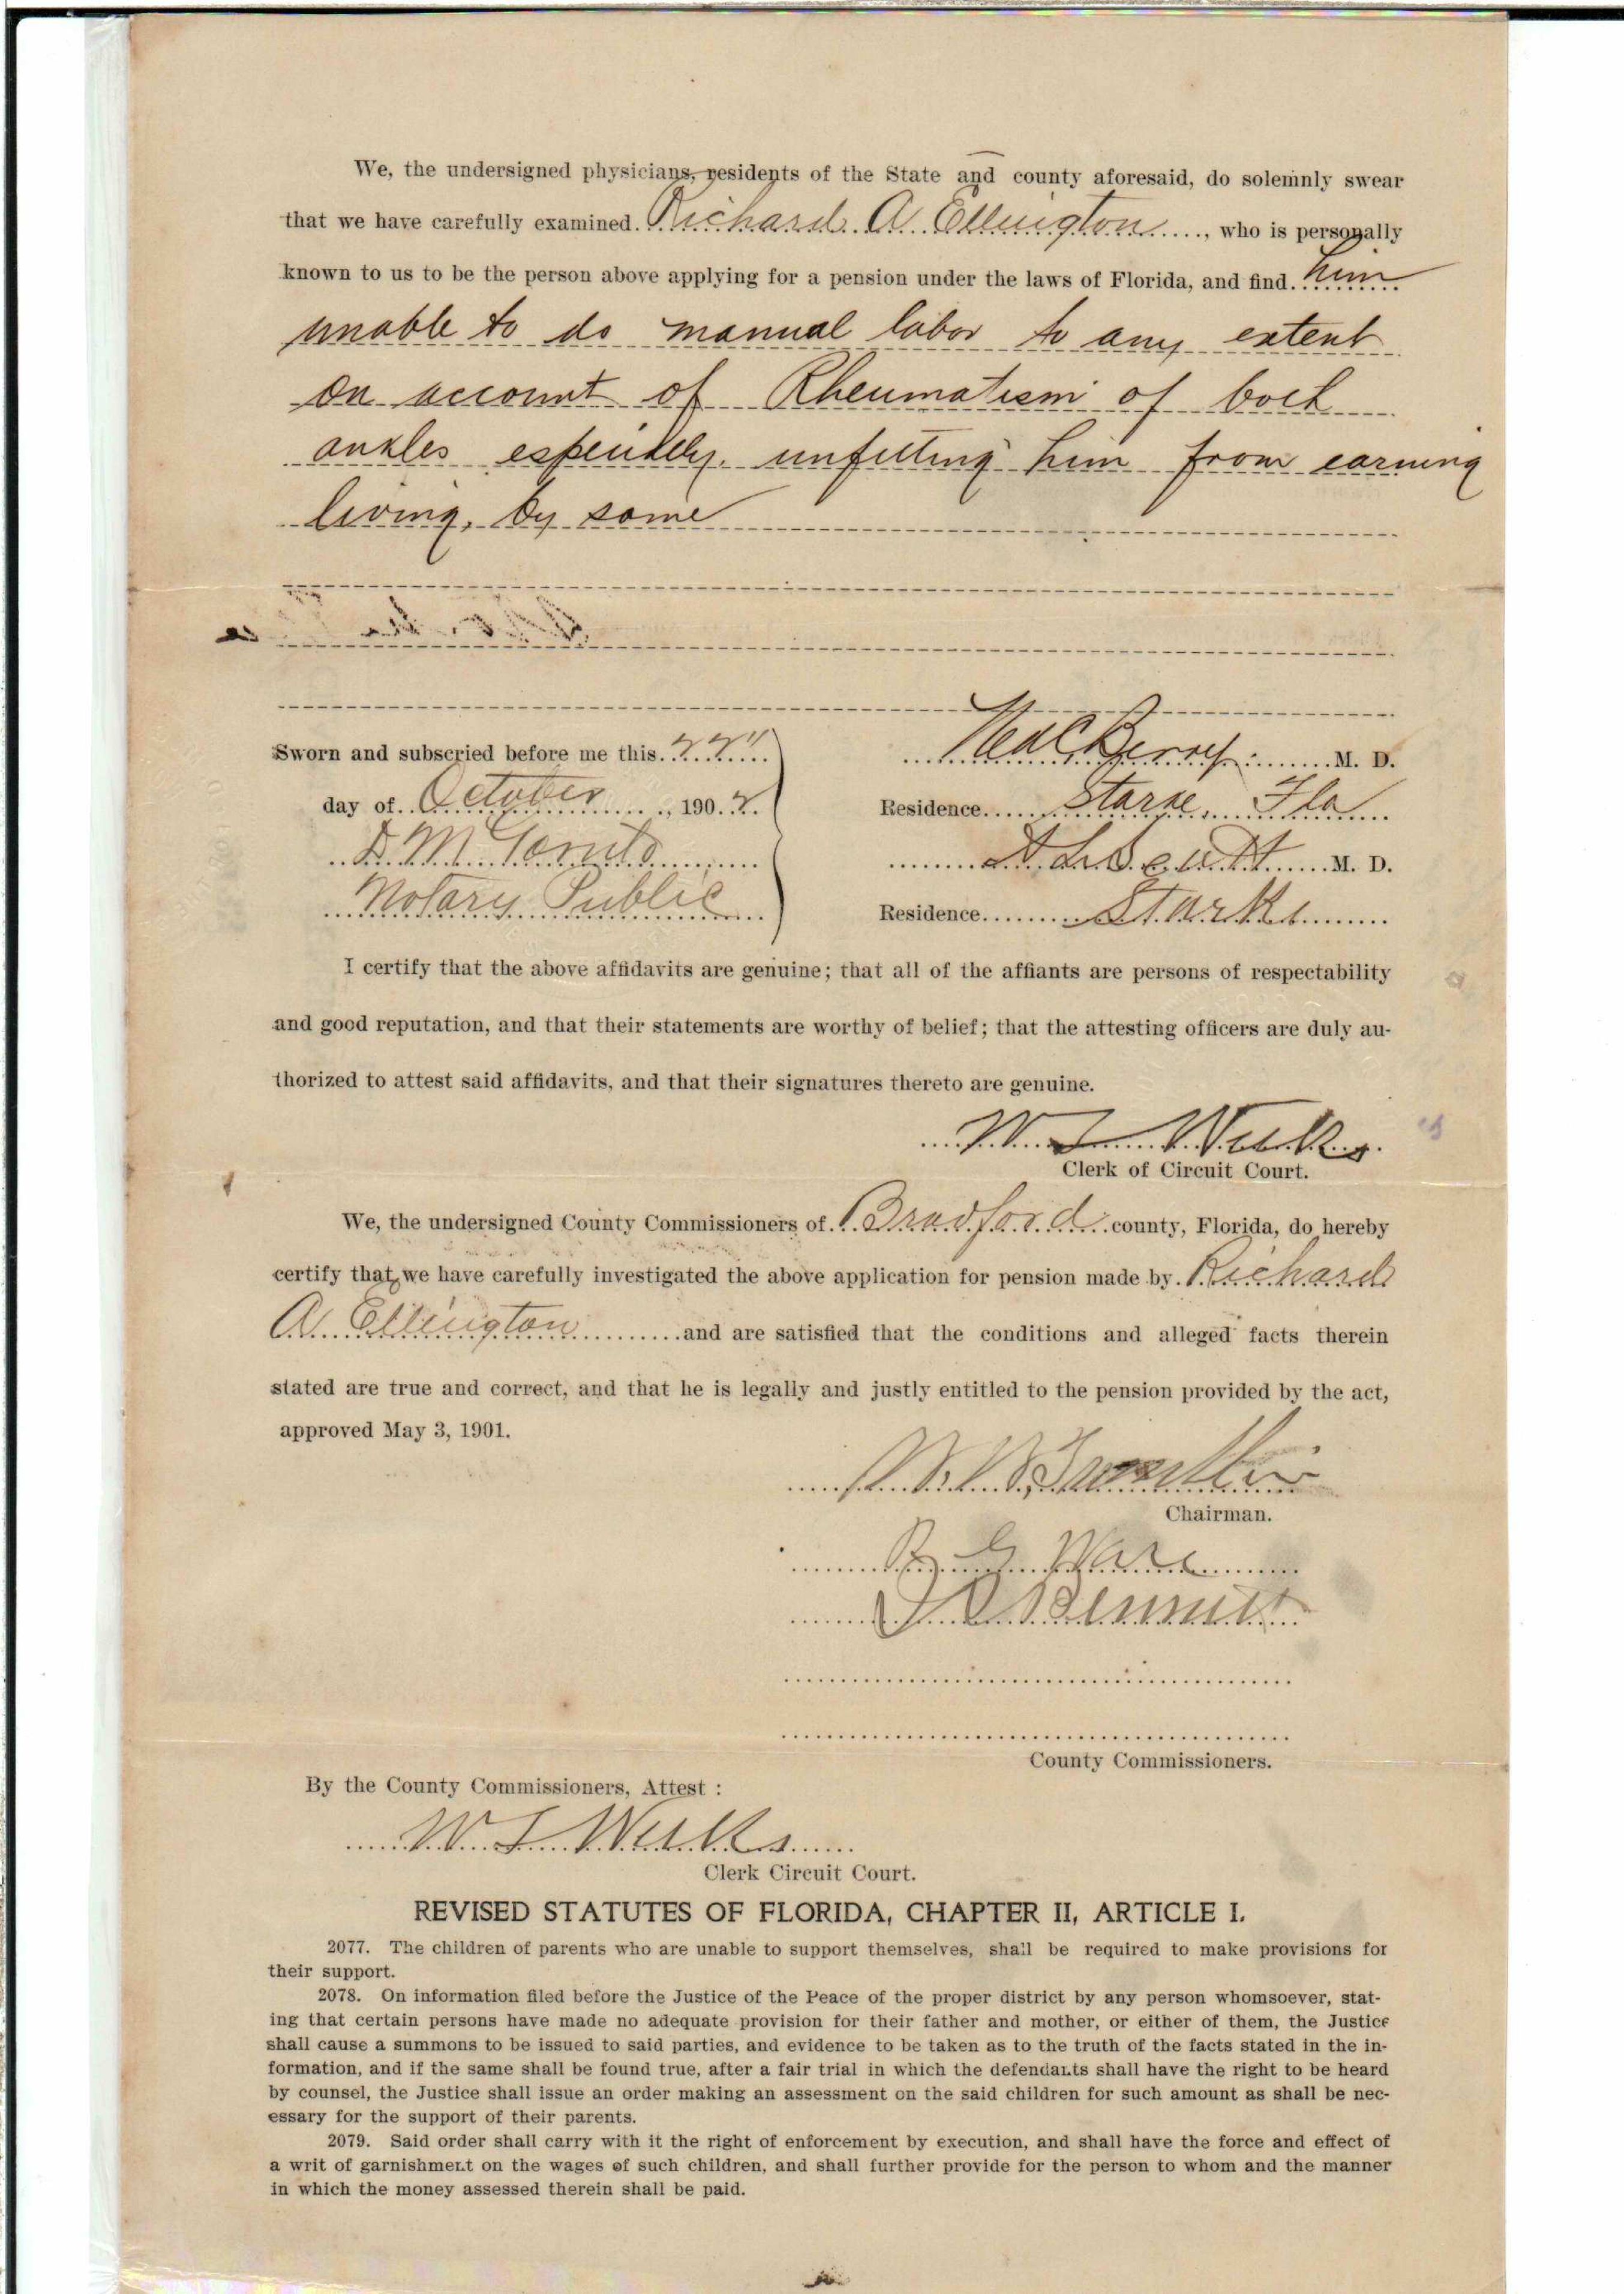 We, the undersigned physicians, residents of the State and county aforesaid, do solemnly swear
that we have carefully examined Richard A Ellington, who is personally
known to us to be the person above applying for a pension under the laws of Florida, and find him
unable to do manual labor to any extent
on account of Rheumatism of both
ankles especially unfitting him from earning
living, by same
Sworn and subscried before me this 22"
M. D.
day of October, 1902
Residence Starke, Fla
D. M.
M. D.
Notary Public
Residence Starke
I certify that the above affidavits are genuine; that all of the affiants are persons of respectability
and good reputation, and that their statements are worthy of belief; that the attesting officers are duly au-
thorized to attest said affidavits, and that their signatures thereto are genuine.
W. Weeks
Clerk of Circuit Court.
We, the undersigned County Commissioners of Bradford county, Florida, do hereby
certify that we have carefully investigated the above application for pension made by Richard
A Ellington and are satisfied that the conditions and alleged facts therein
stated are true and correct, and that he is legally and justly entitled to the pension provided by the act,
approved May 3, 1901.
Chairman.
G Ware
Bennett
County Commissioners.
By the County Commissioners, Attest :
W Weeks
Clerk Circuit Court.
REVISED STATUTES OF FLORIDA, CHAPTER II, ARTICLE I.
2077. The children of parents who are unable to support themselves, shall be required to make provisions for
their support.
2078. On information filed before the Justice of the Peace of the proper district by any person whomsoever, stat-
ing that certain persons have made no adequate provision for their father and mother, or either of them, the Justice
shall cause a summons to be issued to said parties, and evidence to be taken as to the truth of the facts stated in the in-
formation, and if the same shall be found true, after a fair trial in which the defendants shall have the right to be heard
by counsel, the Justice shall issue an order making an assessment on the said children for such amount as shall be nec-
essary for the support of their parents.
2079. Said order shall carry with it the right of enforcement by execution, and shall have the force and effect of
a writ of garnishment on the wages of such children, and shall further provide for the person to whom and the manner
in which the money assessed therein shall be paid.